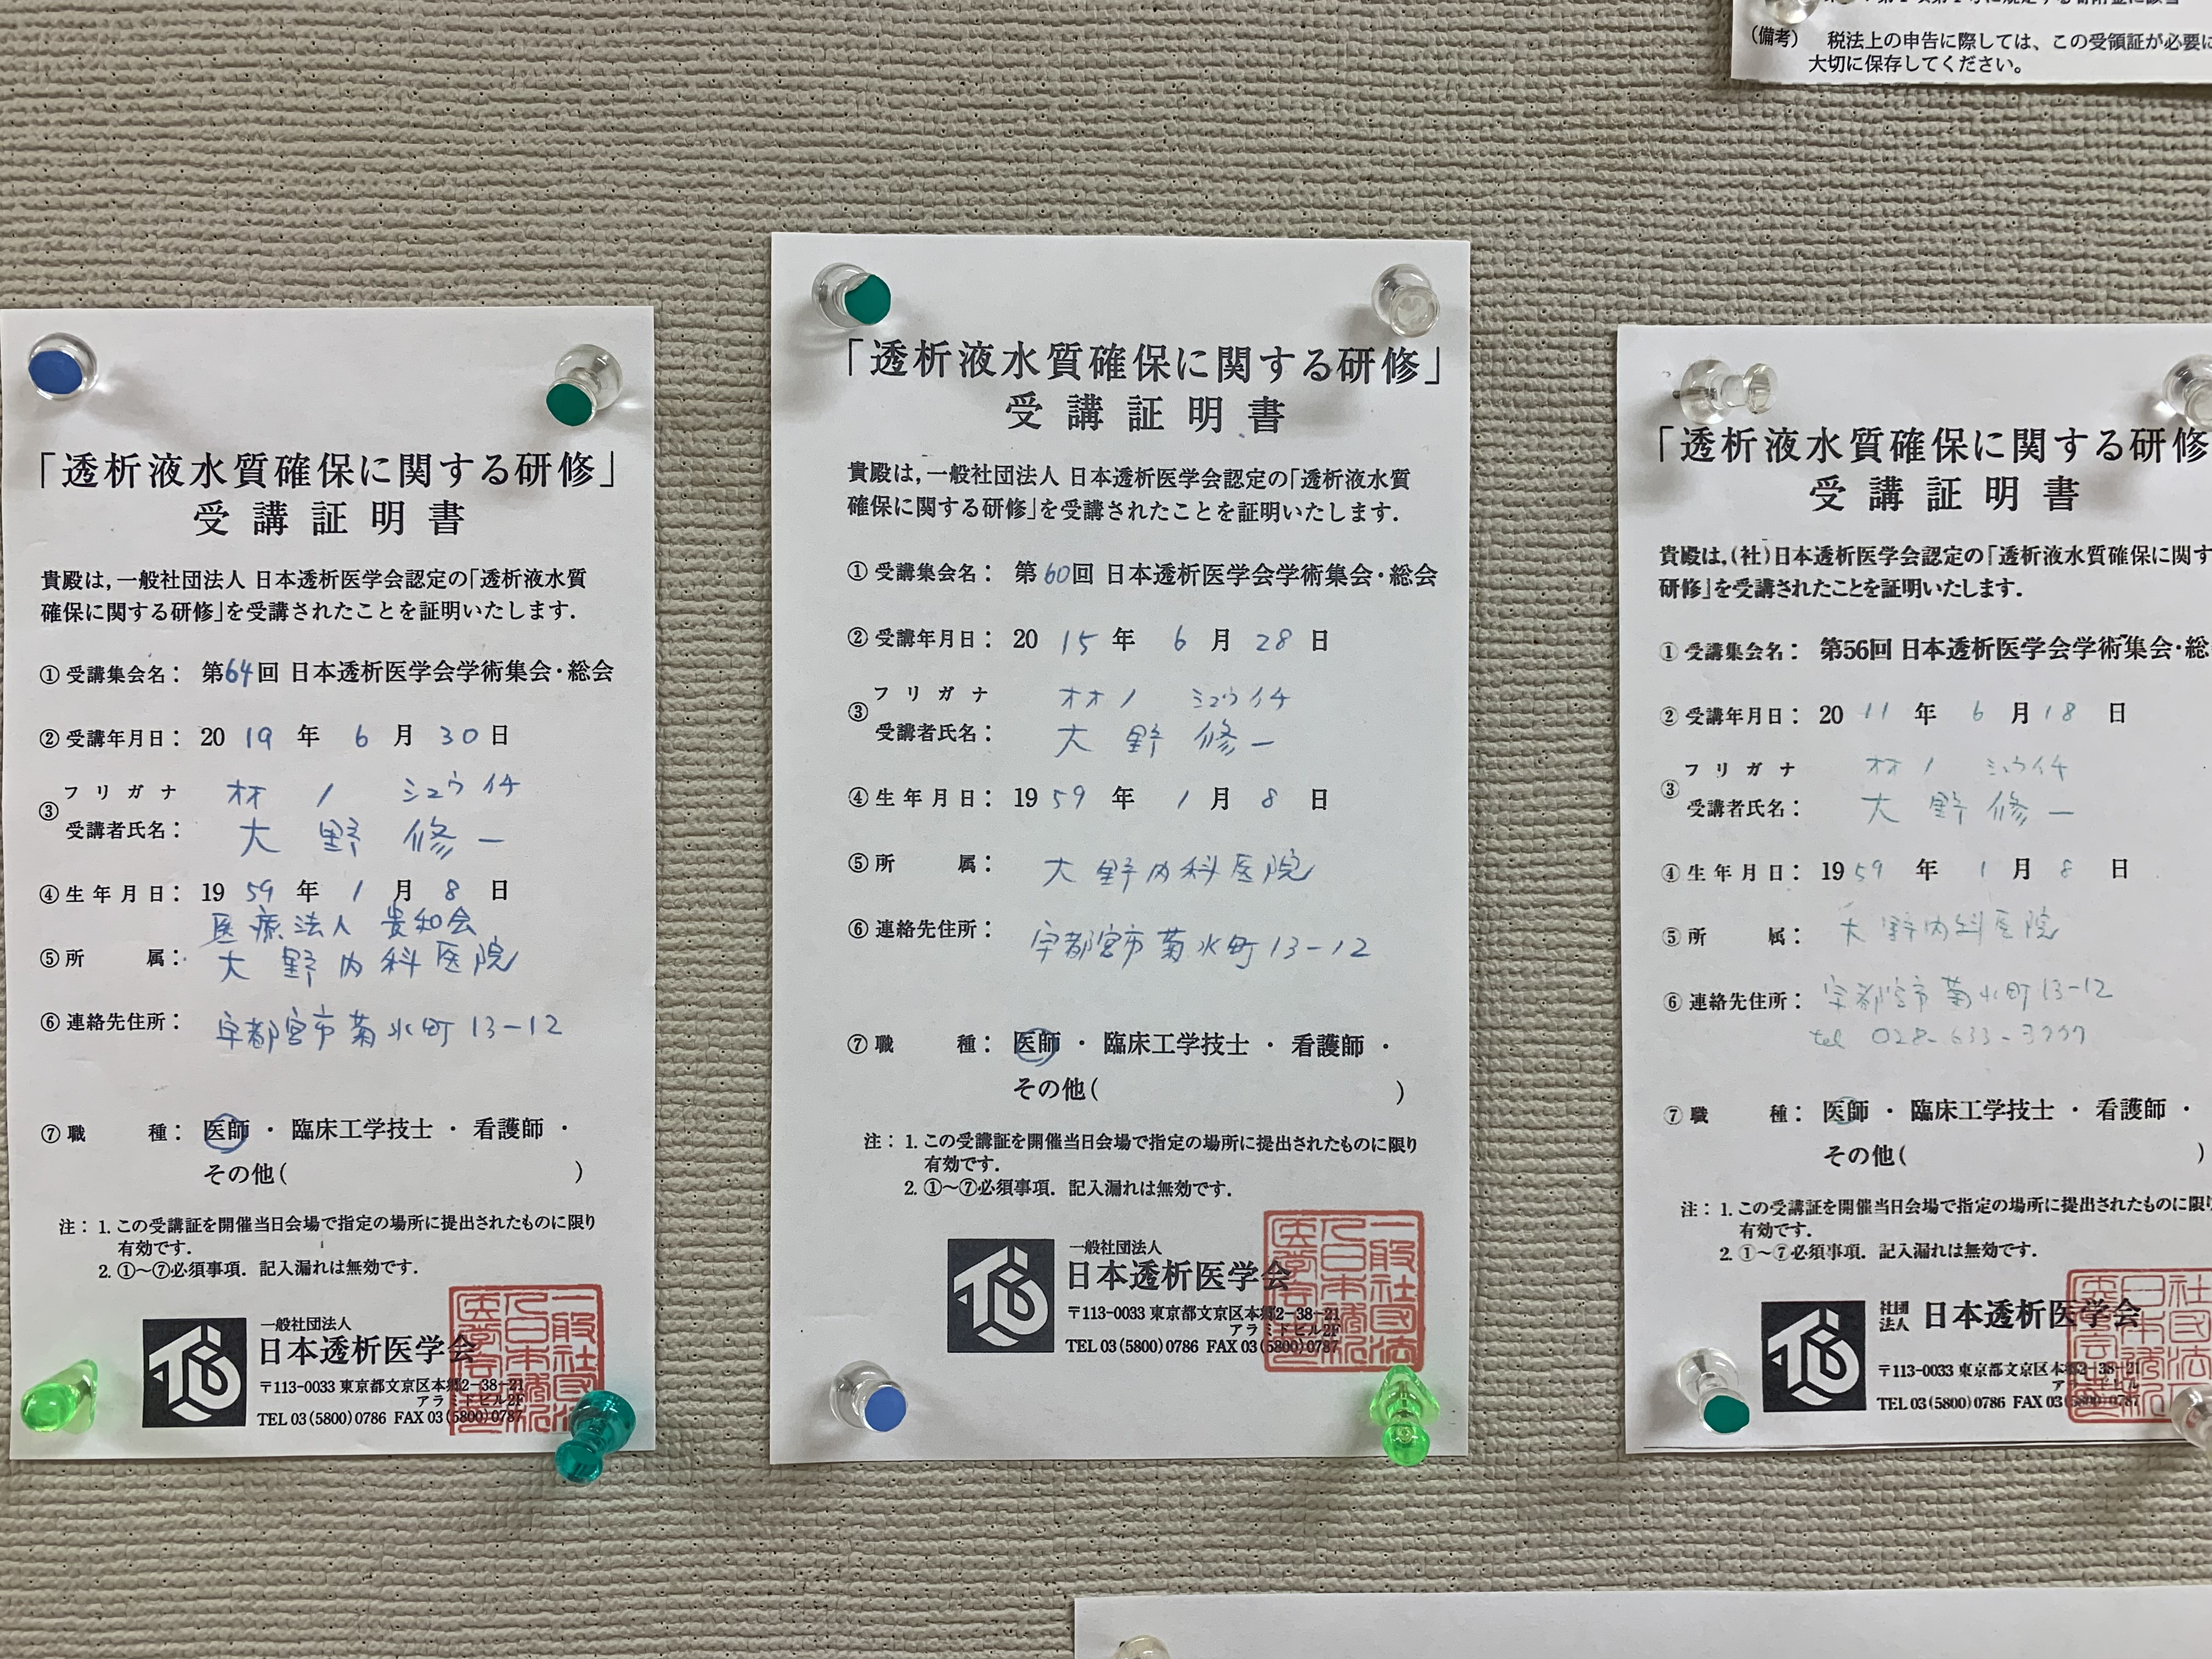 (備考) 税法上の申告に際しては、この受領証が必要に
大切に保存してください。
「透析液水質確保に関する研修」
受講証明書
貴殿は,一般社団法人 日本透析医学会認定の「透析液水質
確保に関する研修」を受講されたことを証明いたします.
①受講集会名: 第64回 日本透析医学会学術集会・総会
②受講年月日: 20 19 年 6 月 30 日
フリガナ オオノ シュウイチ
③受講者氏名: 大野 修一
④生年月日: 19 59 年 1 月 8 日
医療法人 貴和会
⑤所属: 大野内科医院
⑥連絡先住所: 宇都宮市菊水町13-12
⑦職種: 医師・臨床工学技士・看護師・
その他( )
注: 1. この受講証を開催当日会場で指定の場所に提出されたものに限り
有効です.
2. ①〜⑦必須事項. 記入漏れは無効です.
一般社団法人
日本透析医学会
〒113-0033 東京都文京区本郷2-38-21
アラミドビル2F
TEL 03(5800)0786 FAX 03(5800)0787
「透析液水質確保に関する研修」
受講証明書
貴殿は,一般社団法人 日本透析医学会認定の「透析液水質
確保に関する研修」を受講されたことを証明いたします.
①受講集会名: 第60回 日本透析医学会学術集会・総会
②受講年月日: 20 15 年 6 月 28 日
フリガナ オオノ シュウイチ
③受講者氏名: 大野 修一
④生年月日: 19 59 年 1 月 8 日
⑤所属: 大野内科医院
⑥連絡先住所: 宇都宮市菊水町13-12
⑦職種: 医師・臨床工学技士・看護師・
その他( )
注: 1. この受講証を開催当日会場で指定の場所に提出されたものに限り
有効です.
2. ①〜⑦必須事項. 記入漏れは無効です.
一般社団法人
日本透析医学会
〒113-0033 東京都文京区本郷2-38-21
アラミドビル2F
TEL 03(5800)0786 FAX 03(5800)0787
「透析液水質確保に関する研修
受講証明書
貴殿は,(社)日本透析医学会認定の「透析液水質確保に関す
研修」を受講されたことを証明いたします.
①受講集会名: 第56回 日本透析医学会学術集会・総
②受講年月日: 20 11 年 6 月 18 日
フリガナ オオノ シュウイチ
③受講者氏名: 大野 修一
④生年月日: 19 59 年 1 月 8 日
⑤所属: 大野内科医院
⑥連絡先住所: 宇都宮市菊水町13-12
tel 028-633-
⑦職種: 医師・臨床工学技士・看護師・
その他( )
注: 1. この受講証を開催当日会場で指定の場所に提出されたものに限り
有効です.
2. ①〜⑦必須事項. 記入漏れは無効です.
社団法人 日本透析医学会
〒113-0033 東京都文京区本郷2-38-21
TEL 03(5800)0786 FAX 03(5800)0787